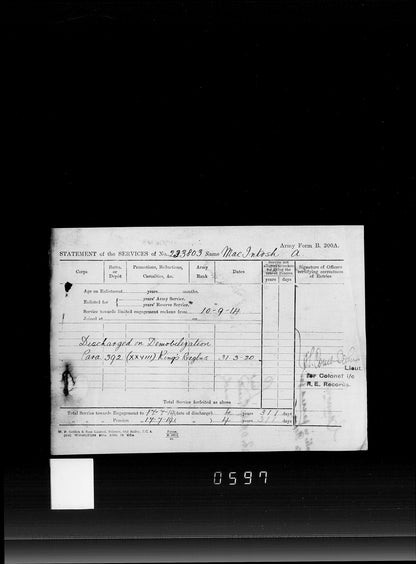 Army Form B. 200A.
STATEMENT of the SERVICES of No. 233803 Name MacIntosh A
Corps
Battn. or Depôt
Promotions, Reductions, Casualties, &c.
Army Rank
Dates
Service not allowed to reckon for fixing the rate of Pension
years days
Signature of Officers certifying correctness of Entries
Age on Enlistment years months.
Enlisted for { years' Army Service.
years' Reserve Service.
Service towards limited engagement reckons from 10-9-14
Joined at on
Discharged on Demobilization
Para 392 (XXVIII) King's Regtns 31-3-20
Lieut.
for Colonel i/c
R.E. Records.
Total Service forfeited as above
Total Service towards Engagement to 17-7-19 (date of discharge) 4 years 311 days
" " Pension 17-7-19 ( " ) 4 years 311 days
0597